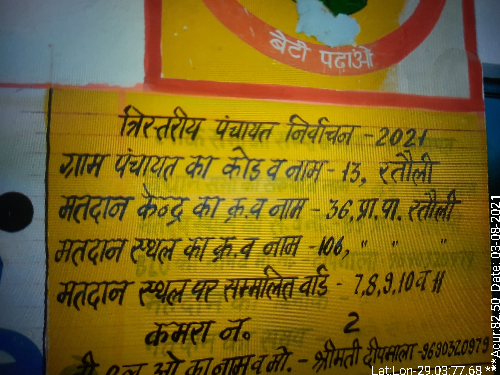 बेटी पढ़ाओ
त्रिस्तरीय पंचायत निर्वाचन - 2021
ग्राम पंचायत का कोड व नाम - 13, रतौली
मतदान केन्द्र का क्र. व नाम - 36, प्रा.पा. रतौली
मतदान स्थल का क्र. व नाम - 106, " " "
मतदान स्थल पर सम्मलित वार्ड - 7,8,9,10 व 11
कमरा न. 2
बी.एल.ओ.का नाम व मो. - श्रीमती दीपमाला - 9690320979
Lat:Lon-29.03:77.68 **Acur:82.50 Date:03-08-2021